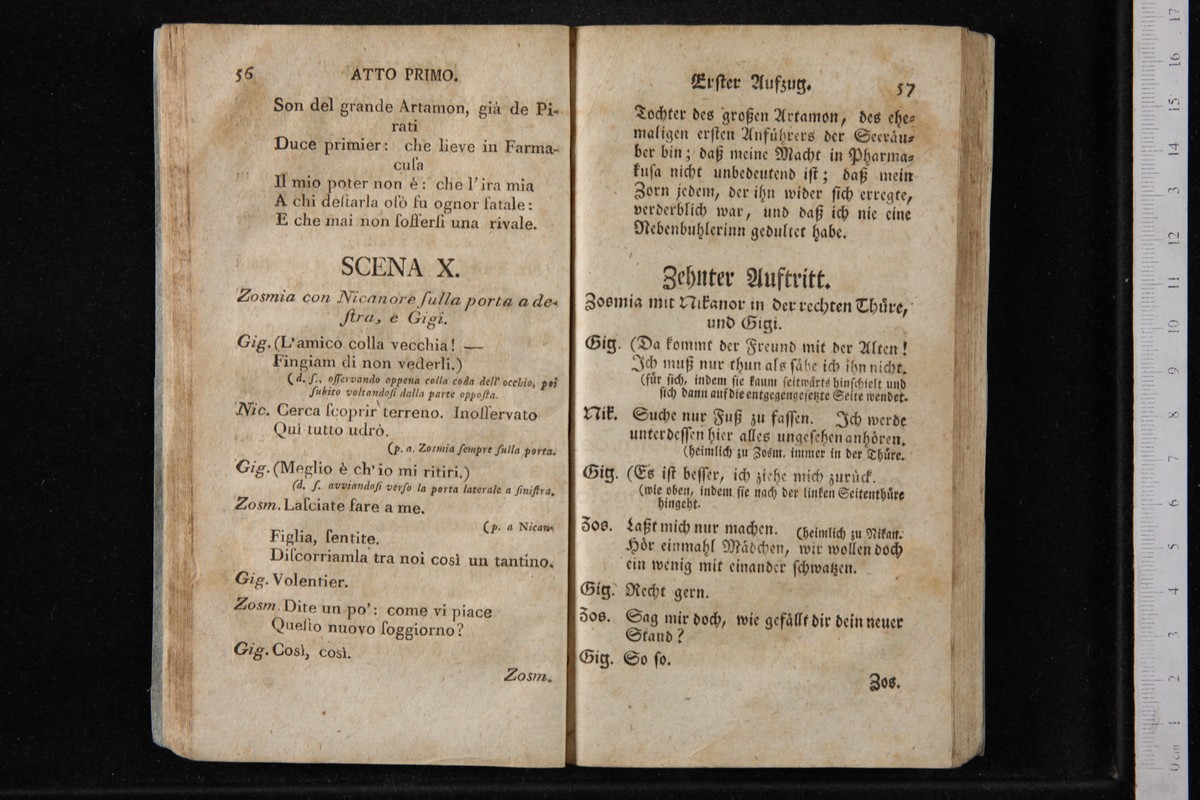 56 ATTO PRIMO.
Son del grande Artamon, già de Pi-
rati
Duce primier: che lieve in Farma-
cuſa
Il mio poter non è: che l'ira mia
A chi deſtarla osò fu ognor fatale:
E che mai non ſofferſi una rivale.
SCENA X.
Zosmia con Nicanore ſulla porta a de-
ſtra, e Gigi.
Gig. (L'amico colla vecchia! —
Fingiam di non vederli.)
(d. ſ., oſſervando appena colla coda dell' occhio, poi
ſubito voltandoſi dalla parte oppoſta.
Nic. Cerca ſcoprir terreno. Inoſſervato
Quì tutto udrò.
(p. a. Zosmia ſempre ſulla porta.
Gig. (Meglio è ch'io mi ritiri.)
(d. ſ. avviandoſi verſo la porta laterale a ſiniſtra.
Zosm. Laſciate fare a me.
(p. a Nican.
Figlia, ſentite.
Diſcorriamla tra noi così un tantino.
Gig. Volentier.
Zosm. Dite un po': come vi piace
Queſto nuovo ſoggiorno?
Gig. Così, così.
Zosm.
Erſter Aufzug. 57
Tochter des großen Artamon, des ehe-
maligen erſten Anführers der Seeräu-
ber bin; daß meine Macht in Pharma-
kuſa nicht unbedeutend iſt; daß mein
Zorn jedem, der ihn wider ſich erregte,
verderblich war, und daß ich nie eine
Nebenbuhlerinn gedultet habe.
Zehnter Auftritt.
Zosmia mit Nikanor in der rechten Thüre,
und Gigi.
Gig. (Da kommt der Freund mit der Alten!
Ich muß nur thun als ſähe ich ihn nicht.
(für ſich, indem ſie kaum ſeitwärts hinſchielt und
ſich dann auf die entgegengeſetzte Seite wendet.
Nik. Suche nur Fuß zu faſſen. Ich werde
unterdeſſen hier alles ungeſehen anhören.
(heimlich zu Zosm. immer in der Thüre.
Gig. (Es iſt beſſer, ich ziehe mich zurück.
(wie oben, indem ſie nach der linken Seitenthüre
hingeht.
Zos. Laßt mich nur machen. (heimlich zu Nikan.
Hör einmahl Mädchen, wir wollen doch
ein wenig mit einander ſchwatzen.
Gig. Recht gern.
Zos. Sag mir doch, wie gefällt dir dein neuer
Stand?
Gig. So ſo.
Zos.
0 cm 1 2 3 4 5 6 7 8 9 10 11 12 13 14 15 16 17